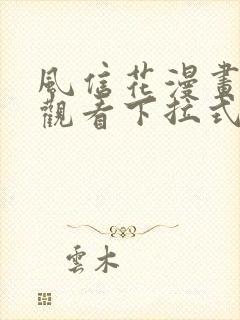 風信花漫畫
觀看下拉式
雲木